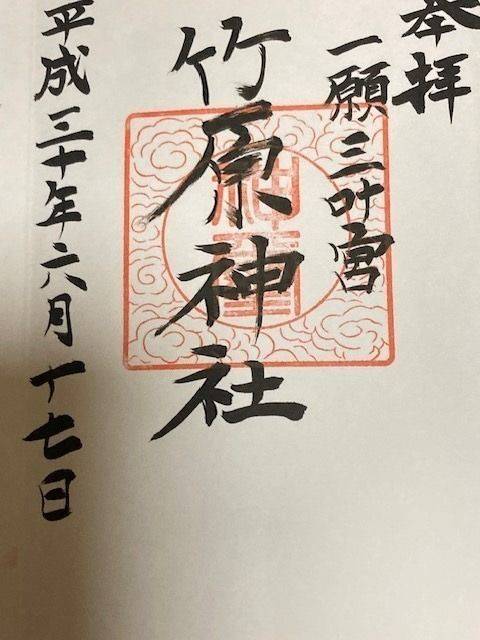 奉拝
一願三叶宮
竹原神社
平成三十年六月十七日